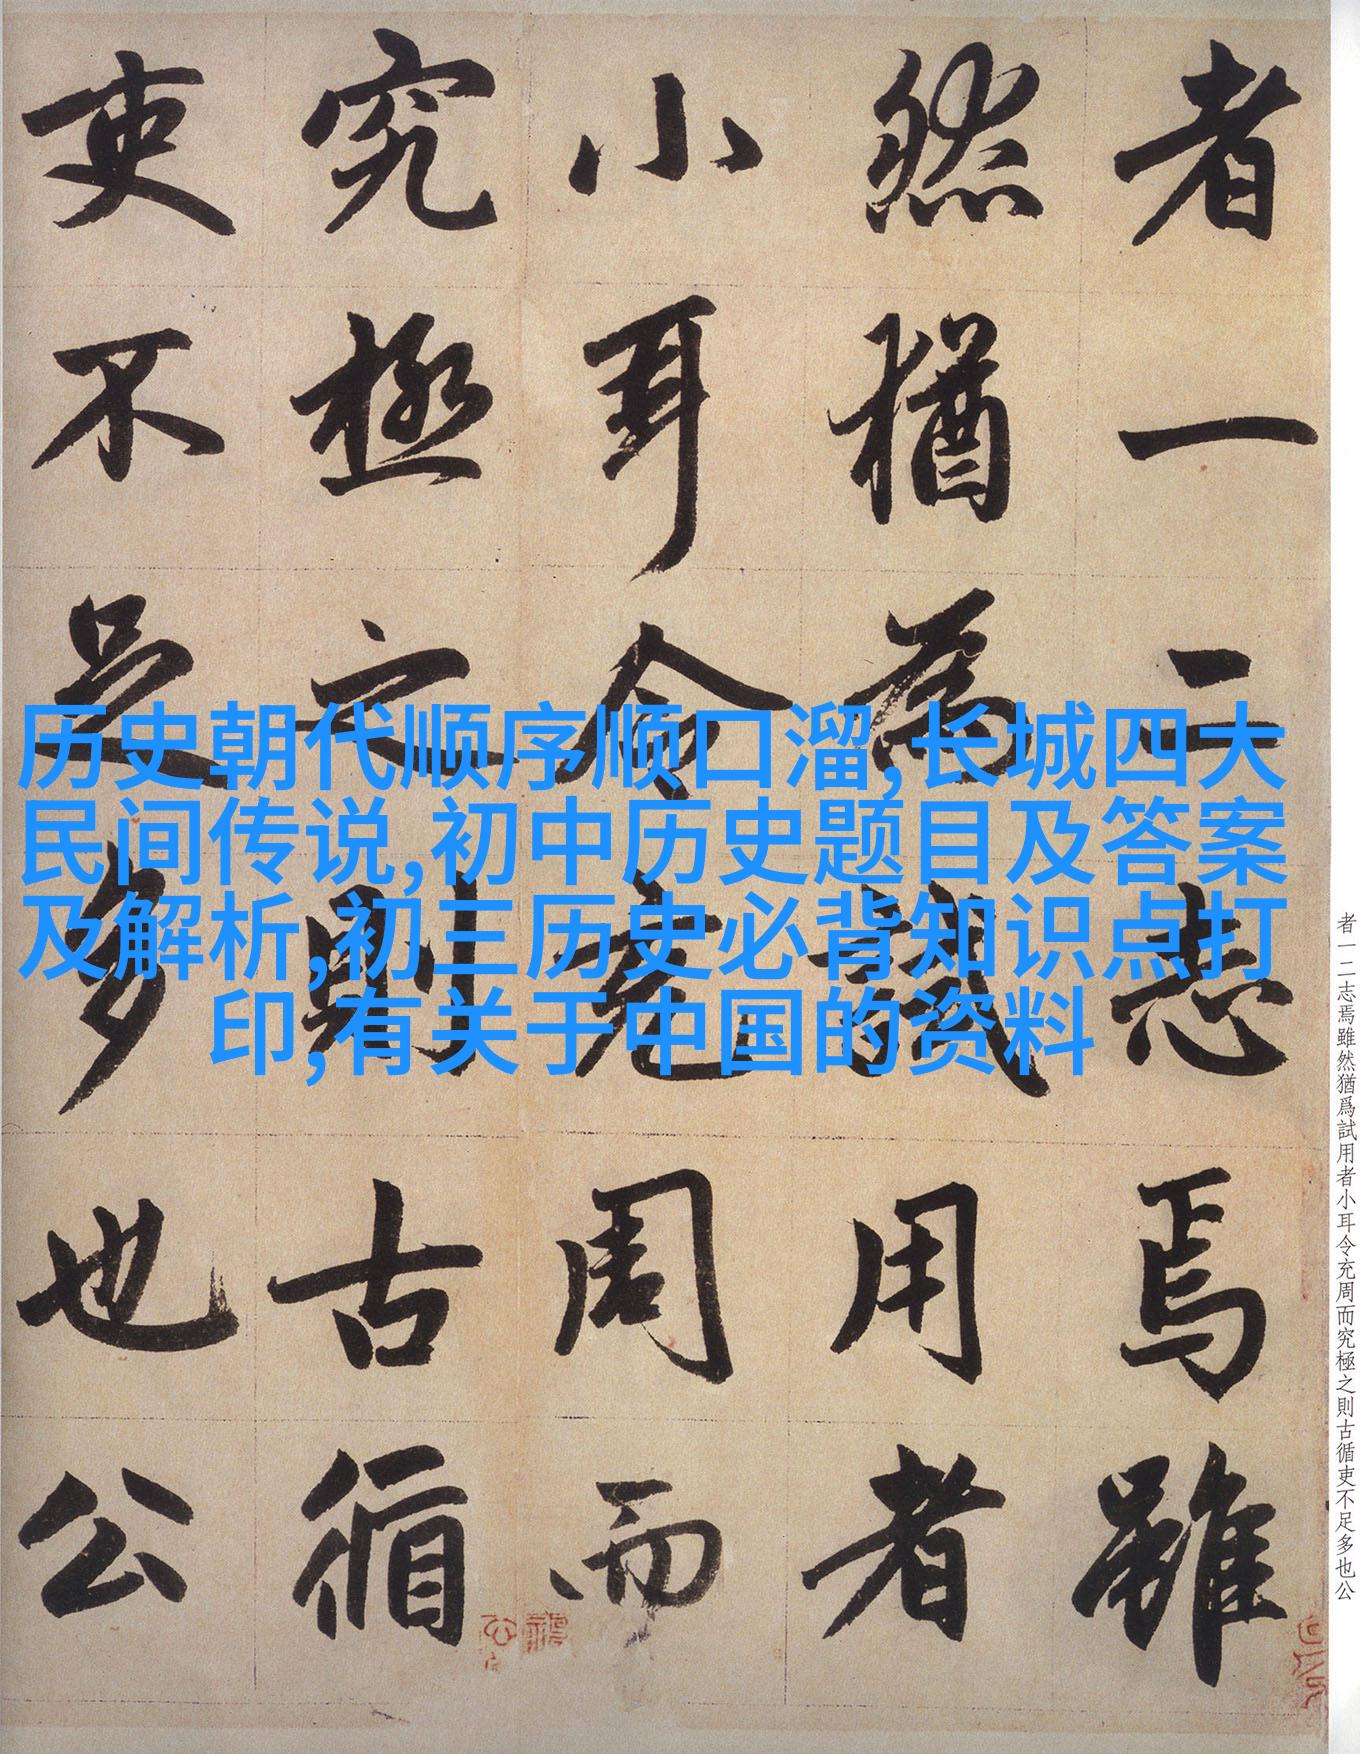 者一二志焉雖
然猶為試用者
小耳令充周而
究極之則古循
吏不足多也公
历史朝代顺序顺口溜,长城四大
民间传说,初中历史题目及答案
及解析,初三历史必背知识点打
印,有关于中国的资料
者一二志焉雖然猶爲試用者小耳令充周而究極之則古循吏不足多也公